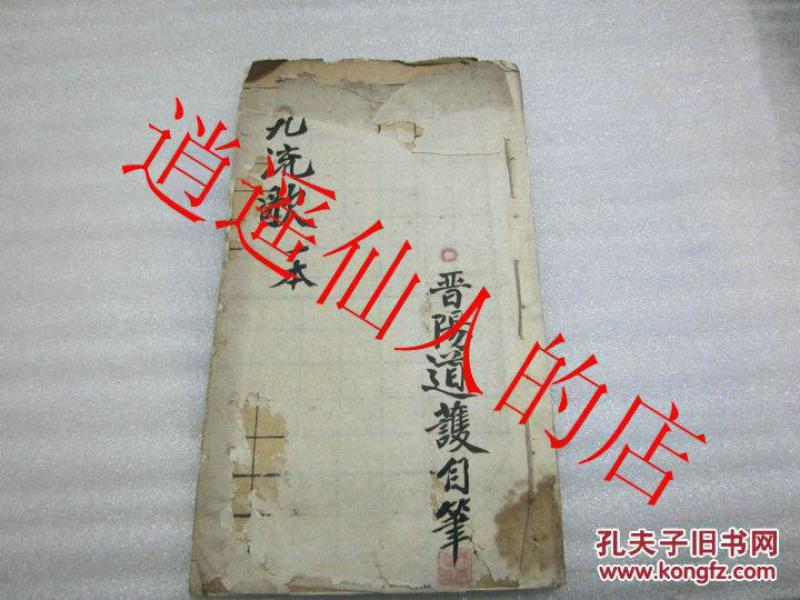 晋陽道護自筆
九流歌一本
逍遥仙人的店
孔夫子旧书网
www.kongfz.com